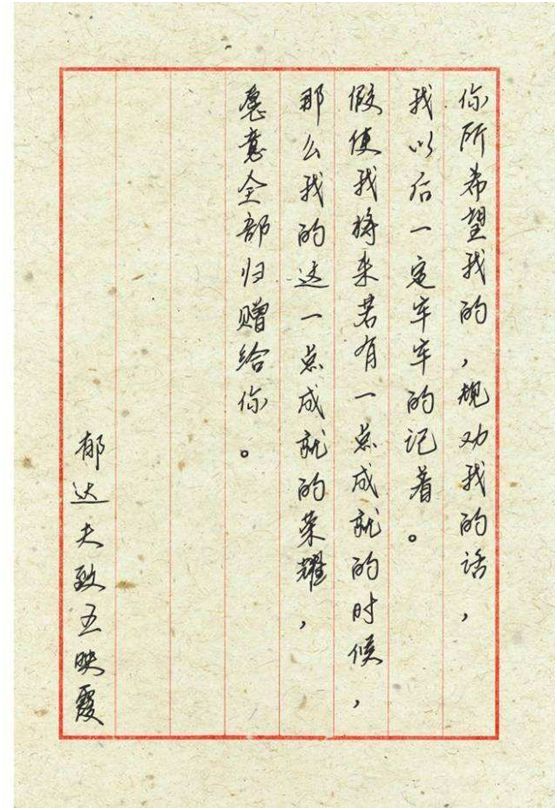 你所希望我的,规劝我的话,
我以后一定牢牢的记着。
假使我将来若有一点成就的时候,
那么我的这一点成就的荣耀,
愿意全部归赠给你。
郁达夫致王映霞